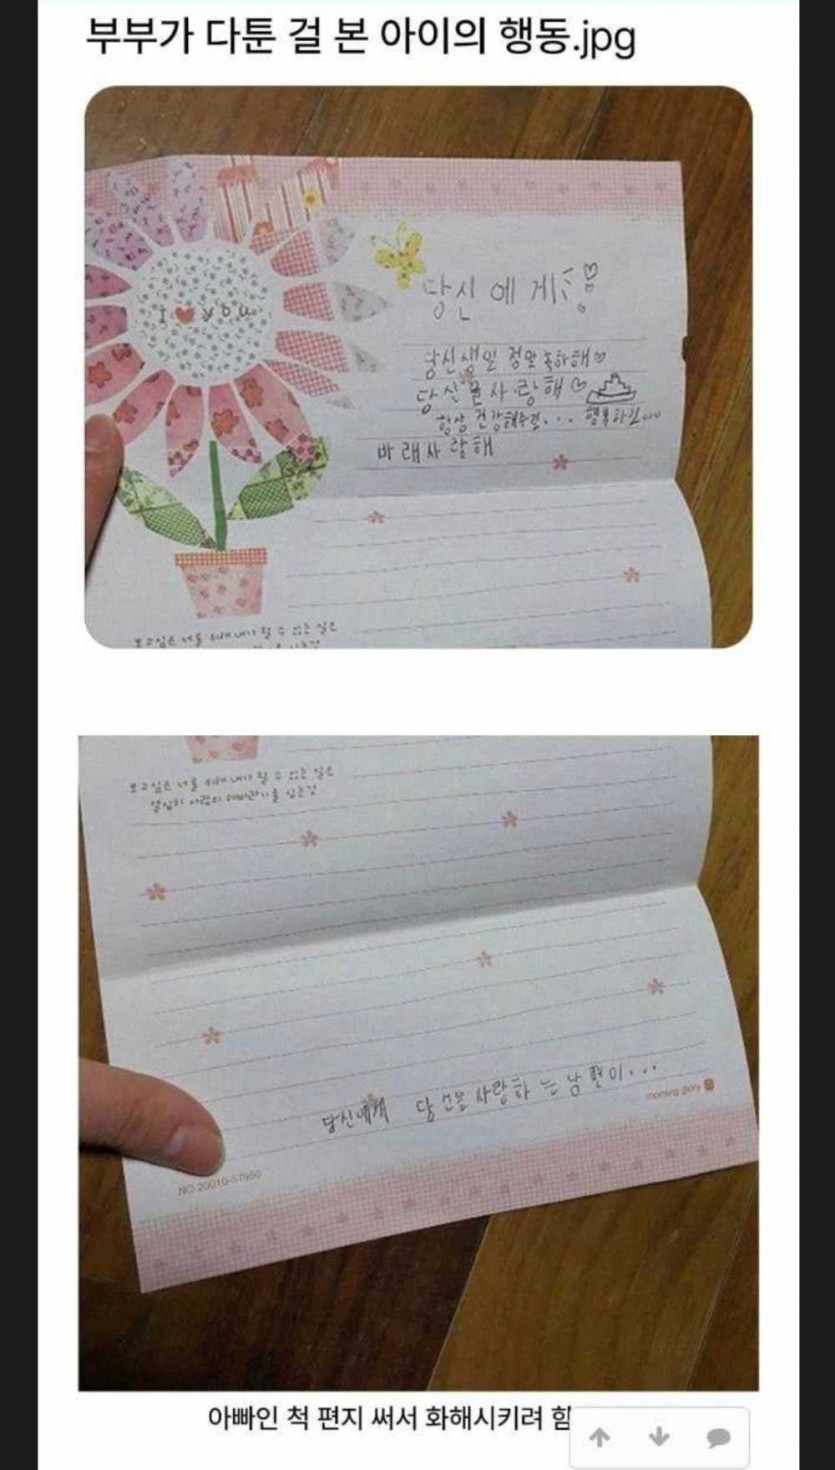 부부가 다툰 걸 본 아이의 행동.jpg
I ♥ you
당신에게
당신생일 정말 축하해♡
당신을 사랑해♡
항상 건강해주길... 행복하길...
바래 사랑해
보고싶은 너를 위해 내가 할 수 있는 일은
보고싶은 너를 위해 내가 할 수 있는 일은
열심히 사랑의 해바라기를 심는것
당신에게 당신을 사랑하는 남편이...
morning glory
NO.20010-57950
아빠인 척 편지 써서 화해시키려 함